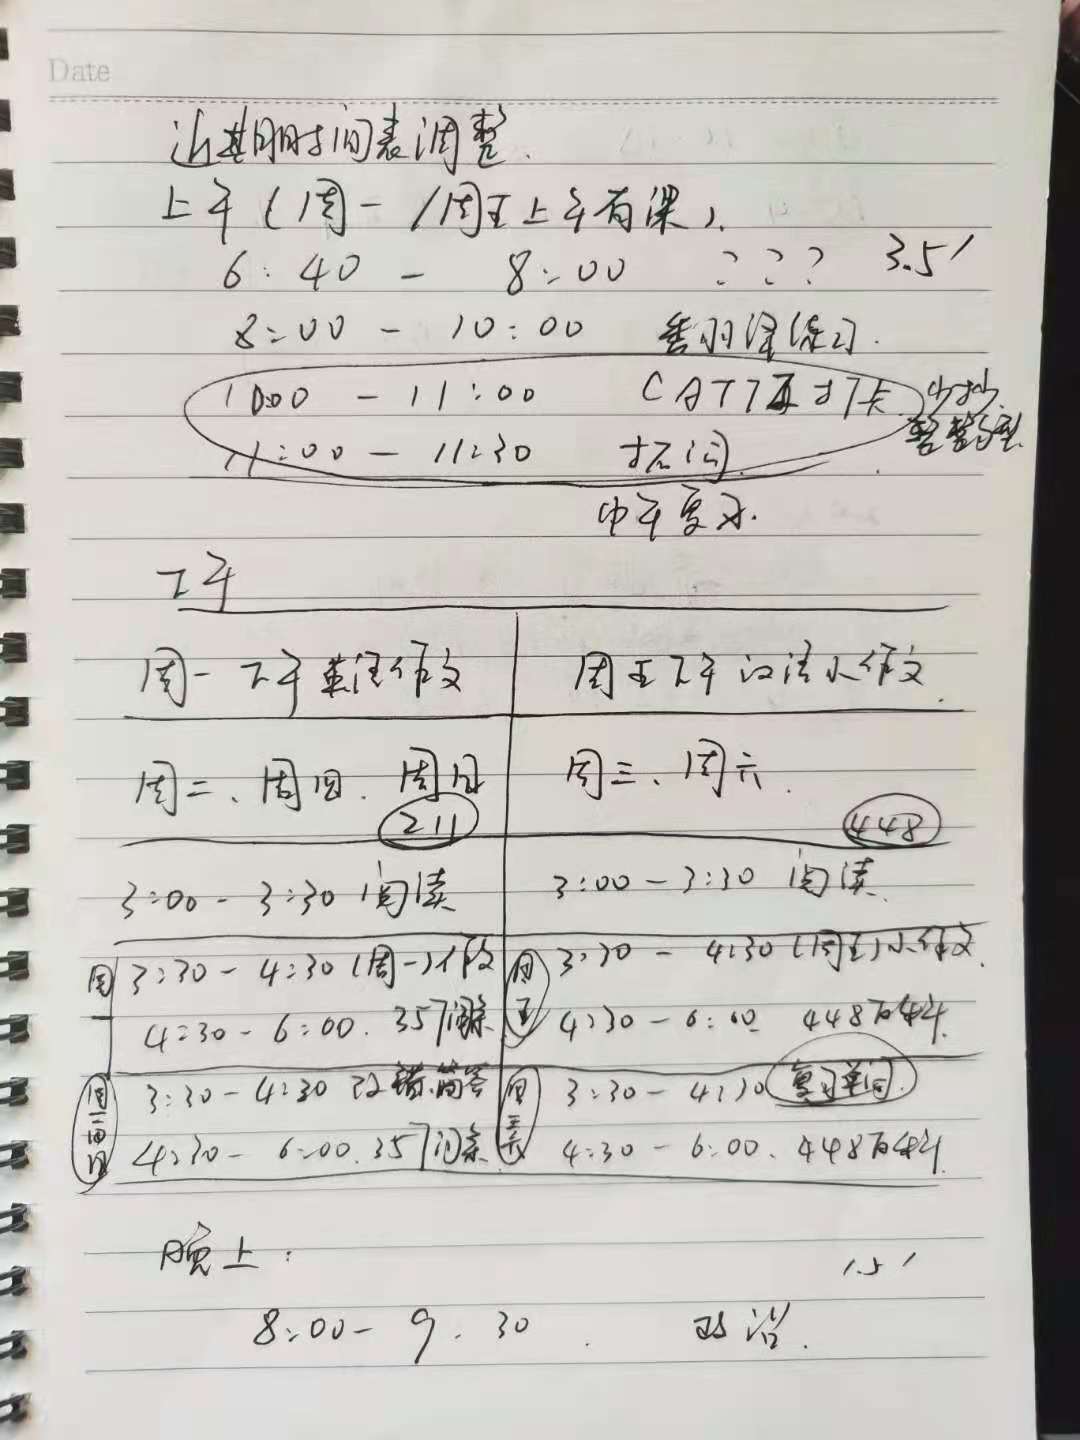 Date
近期时间表调整.
上午(周一/周五上午有课).
6:40 - 8:00 ??? 3.5'
8:00 - 10:00 看翻译练习.
10:00 - 11:00 CATTI 打卡
11:00 - 11:30 捂词. 整整
中午复习.
下午
周一下午英语作文 周五下午汉语小作文.
周二、周四、周日 周三、周六.
211 448
3:00 - 3:30 阅读 3:00 - 3:30 阅读
周一 3:30 - 4:30 (周一)作文 周五 3:30 - 4:30 (周五)小作文.
4:30 - 6:00. 357词条 4:30 - 6:00 448百科.
周二四日 3:30 - 4:30 改错.简答 周三六 3:30 - 4:30 复习单词.
4:30 - 6:00. 357词条 4:30 - 6:00. 448百科.
晚上: 1.5'
8:00 - 9.30. 政治.